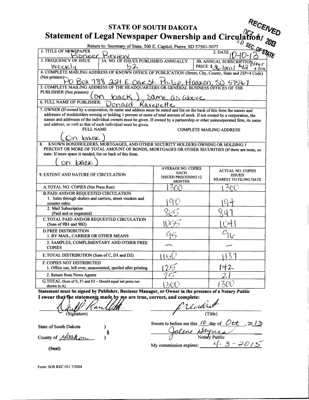 RECEIVED
OCT 2013
S.D. SEC. OF STATE
STATE OF SOUTH DAKOTA
Statement of Legal Newspaper Ownership and Circulation
Return to: Secretary of State, 500 E. Capitol, Pierre, SD 57501-5077
1. TITLE OF NEWSPAPER
Pioneer Review
2. DATE
10-10-13
3. FREQUENCY OF ISSUE
Weekly
3A. NO. OF ISSUES PUBLISHED ANNUALLY
52
3B. ANNUAL SUBSCRIPTION
PRICE
4. COMPLETE MAILING ADDRESS OF KNOWN OFFICE OF PUBLICATION (Street, City, County, State and ZIP+4 Code)
(Not printers)
PO Box 788 221 E Oak St Philip, Haakon, SD 57567
5. COMPLETE MAILING ADDRESS OF THE HEADQUARTERS OR GENERAL BUSINESS OFFICES OF THE
PUBLISHER (Not printer)
(on back) same as above
6. FULL NAME OF PUBLISHER:
Donald Ravellette
7. OWNER (If owned by a corporation, its name and address must be stated and list on the back of this form the names and
addresses of stockholders owning or holding 1 percent or more of total amount of stock. If not owned by a corporation, the
names and addresses of the individual owners must be given. If owned by a partnership or other unincorporated firm, its name
and address, as well as that of each individual must be given.
FULL NAME COMPLETE MAILING ADDRESS
(on back)
8. KNOWN BONDHOLDERS, MORTGAGEES, AND OTHER SECURITY HOLDERS OWNING OR HOLDING 1
PERCENT OR MORE OF TOTAL AMOUNT OF BONDS, MORTGAGES OR OTHER SECURITIES (If there are none, so
state. If more space is needed, list on back of this form.
(on back)
9. EXTENT AND NATURE OF CIRCULATION
AVERAGE NO. COPIES
EACH
ISSUED PRECEDING 12
MONTHS
ACTUAL NO. COPIES
ISSUED
NEAREST TO FILING DATE
A. TOTAL NO. COPIES (Net Press Run) 1300 1300
B. PAID AND/OR REQUESTED CIRCULATION
1. Sales through dealers and carriers, street vendors and
counter sales. 190 194
2. Mail Subscription
(Paid and or requested) 865 847
C. TOTAL PAID AND/OR REQUESTED CIRCULATION
(Sum of 9B1 and 9B2) 1055 1041
D. FREE DISTRIBUTION
1. BY MAIL, CARRIER OR OTHER MEANS 95 96
2. SAMPLES, COMPLIMENTARY AND OTHER FREE
COPIES
E. TOTAL DISTRIBUTION (Sum of C, D1 and D2) 1150 1137
F. COPIES NOT DISTRIBUTED
1. Office use, left over, unaccounted, spoiled after printing 125 142
2. Return from News Agents 25 21
G. TOTAL (Sum of E, F1 and F2 - Should equal net press run
shown in A) 1300 1300
Statement must be signed by Publisher, Business Manager, or Owner in the presence of a Notary Public
I swear that the statements made by me are true, correct, and complete:
President
(Signature) (Title)
State of South Dakota )
§
County of Haakon )
Sworn to before me this 10 day of Oct, 2013
Notary Public
(Seal)
My commission expires: 4-3-2015
Form: SOS REC 051 7/2004